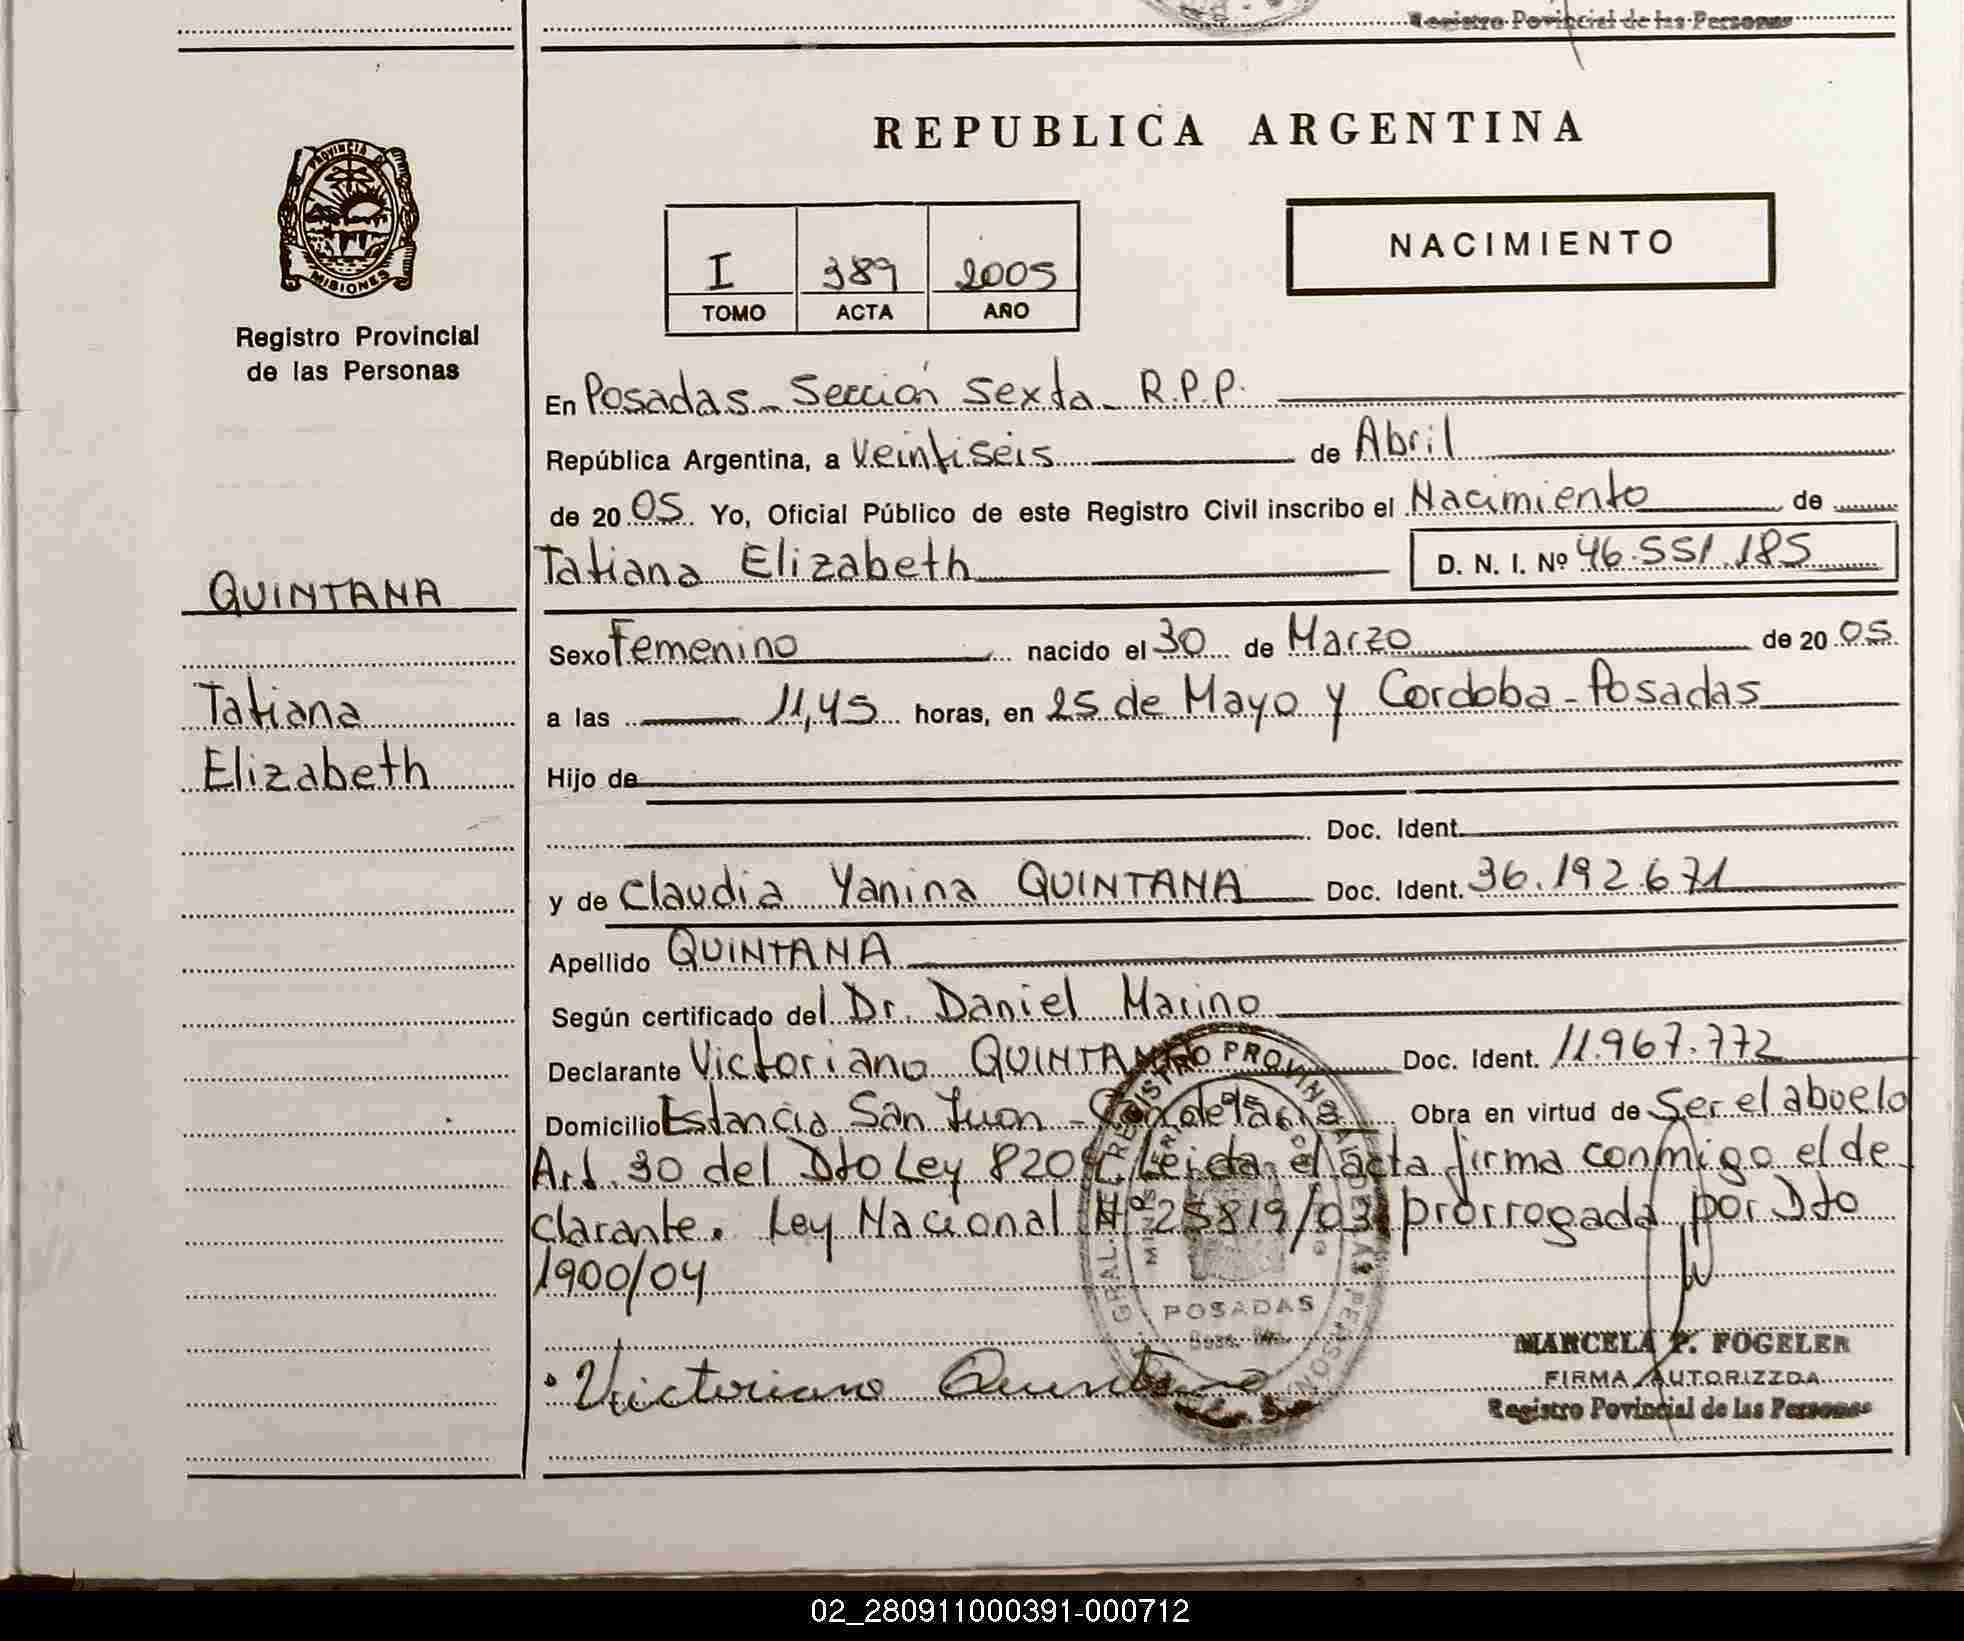 Registro Povincial de las Personas
REPUBLICA ARGENTINA
PROVINCIA DE
MISIONES
Registro Provincial
de las Personas
I 389 2005
TOMO ACTA AÑO
NACIMIENTO
En Posadas - Sección Sexta - R.P.P.
República Argentina, a Veintiseis de Abril
de 2005. Yo, Oficial Público de este Registro Civil inscribo el Nacimiento de
Tatiana Elizabeth D. N. I. Nº 46.551.185
QUINTANA
Tatiana
Elizabeth
Sexo Femenino nacido el 30 de Marzo de 2005.
a las 11,45 horas, en 25 de Mayo y Cordoba - Posadas
Hijo de
Doc. Ident.
y de Claudia Yanina QUINTANA Doc. Ident. 36.192.671
Apellido QUINTANA
Según certificado del Dr. Daniel Marino
Declarante Victoriano QUINTANA Doc. Ident. 11.967.772
Domicilio Estancia San Juan - Candelaria Obra en virtud de Ser el abuelo
Art. 30 del Dto Ley 8204 Leida el acta firma conmigo el de
clarante. Ley Nacional Nº 25819/03 prorrogada por Dto
1900/04
POSADAS
Victoriano Quintana
MARCELA P. FOGELER
FIRMA AUTORIZZDA
Registro Povincial de las Personas
02_280911000391-000712